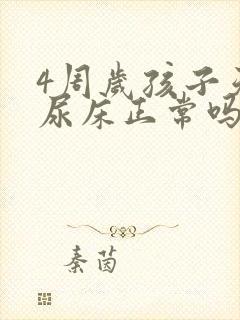 4周岁孩子
尿床正常吗
秦茵